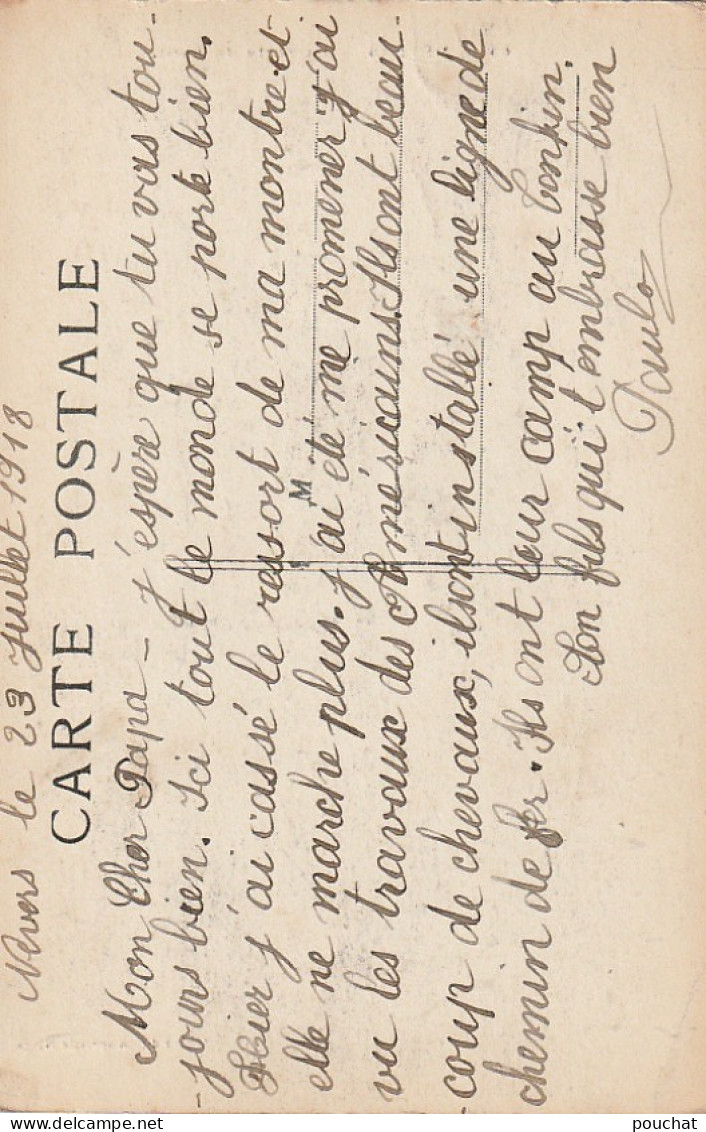 Nevers le 23 Juillet 1918
CARTE POSTALE
Mon Cher Papa – J'espère que tu vas tou-
-jours bien. Ici tout le monde se porte bien.
Hier j'ai cassé le ressort de ma montre et
elle ne marche plus. J'ai été me promener j'ai
M
vu les travaux des Américains. Ils ont beau-
-coup de chevaux, ils ont installé une ligne de
chemin de fer. Ils ont leur camp au Tonkin.
Ton fils qui t'embrasse bien
Paulo
delcampe.net
pouchat